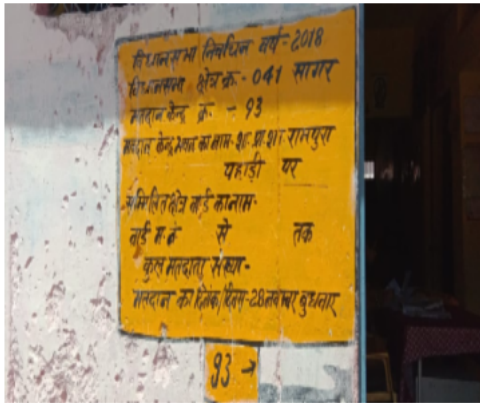 विधानसभा निर्वाचन वर्ष-2018
विधानसभा क्षेत्र क्र.- 041 सागर
मतदान केन्द्र क्र. - 93
मतदान केन्द्र भवन का नाम-शा.प्रा.शा रामपुरा
पहाड़ी पर
सम्मिलित क्षेत्र वार्ड का नाम-
वार्ड म.नं से तक
कुल मतदाता संख्या-
मतदान का दिनांक/दिवस-28 नवम्बर बुधवार
93 →